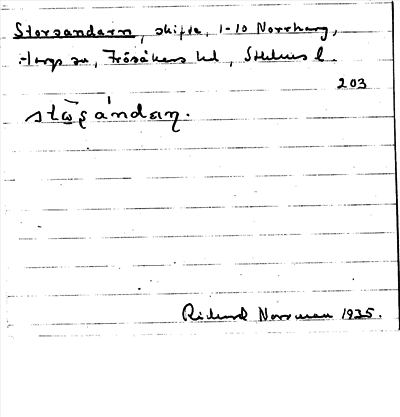 Storsandarn, skifte, 1-10 Norrharg,
Hargs sn, Frösåkers hd, Sthlms l.
203
stὼʂándaɳ.
Rickard Norrman 1935.